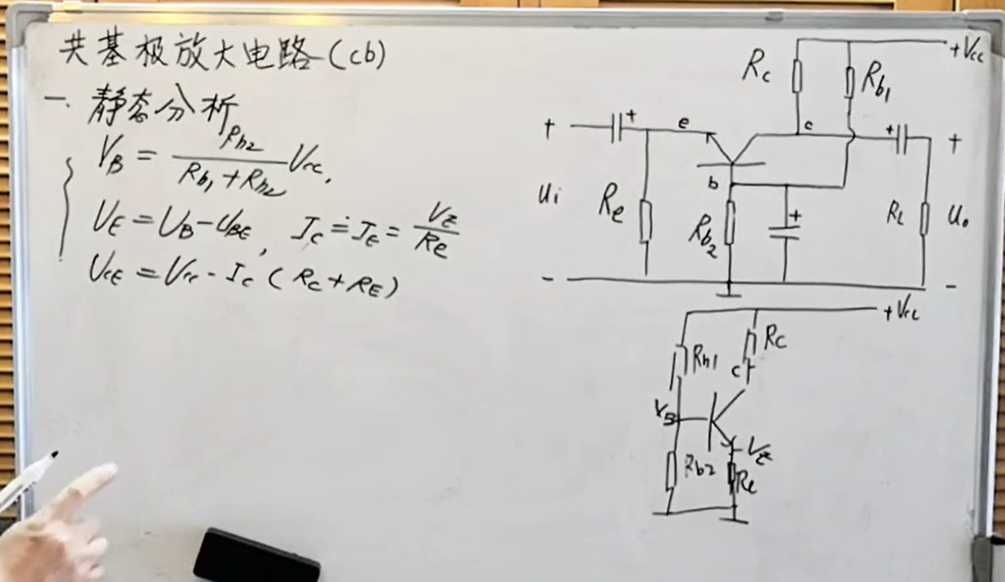 共基极放大电路(cb)
一. 静态分析
V_B = R_b2 / (R_b1 + R_b2) V_cc,
U_E = U_B - U_BE, I_C ≐ I_E = V_E / R_e
U_CE = V_cc - I_c (R_c + R_E)
+Vcc
Rc
Rb1
+
+
e
c
+
+
b
ui
Re
Rb2
+
RL
uo
-
-
+Vcc
Rb1
Rc
c
VB
VE
Rb2
Re